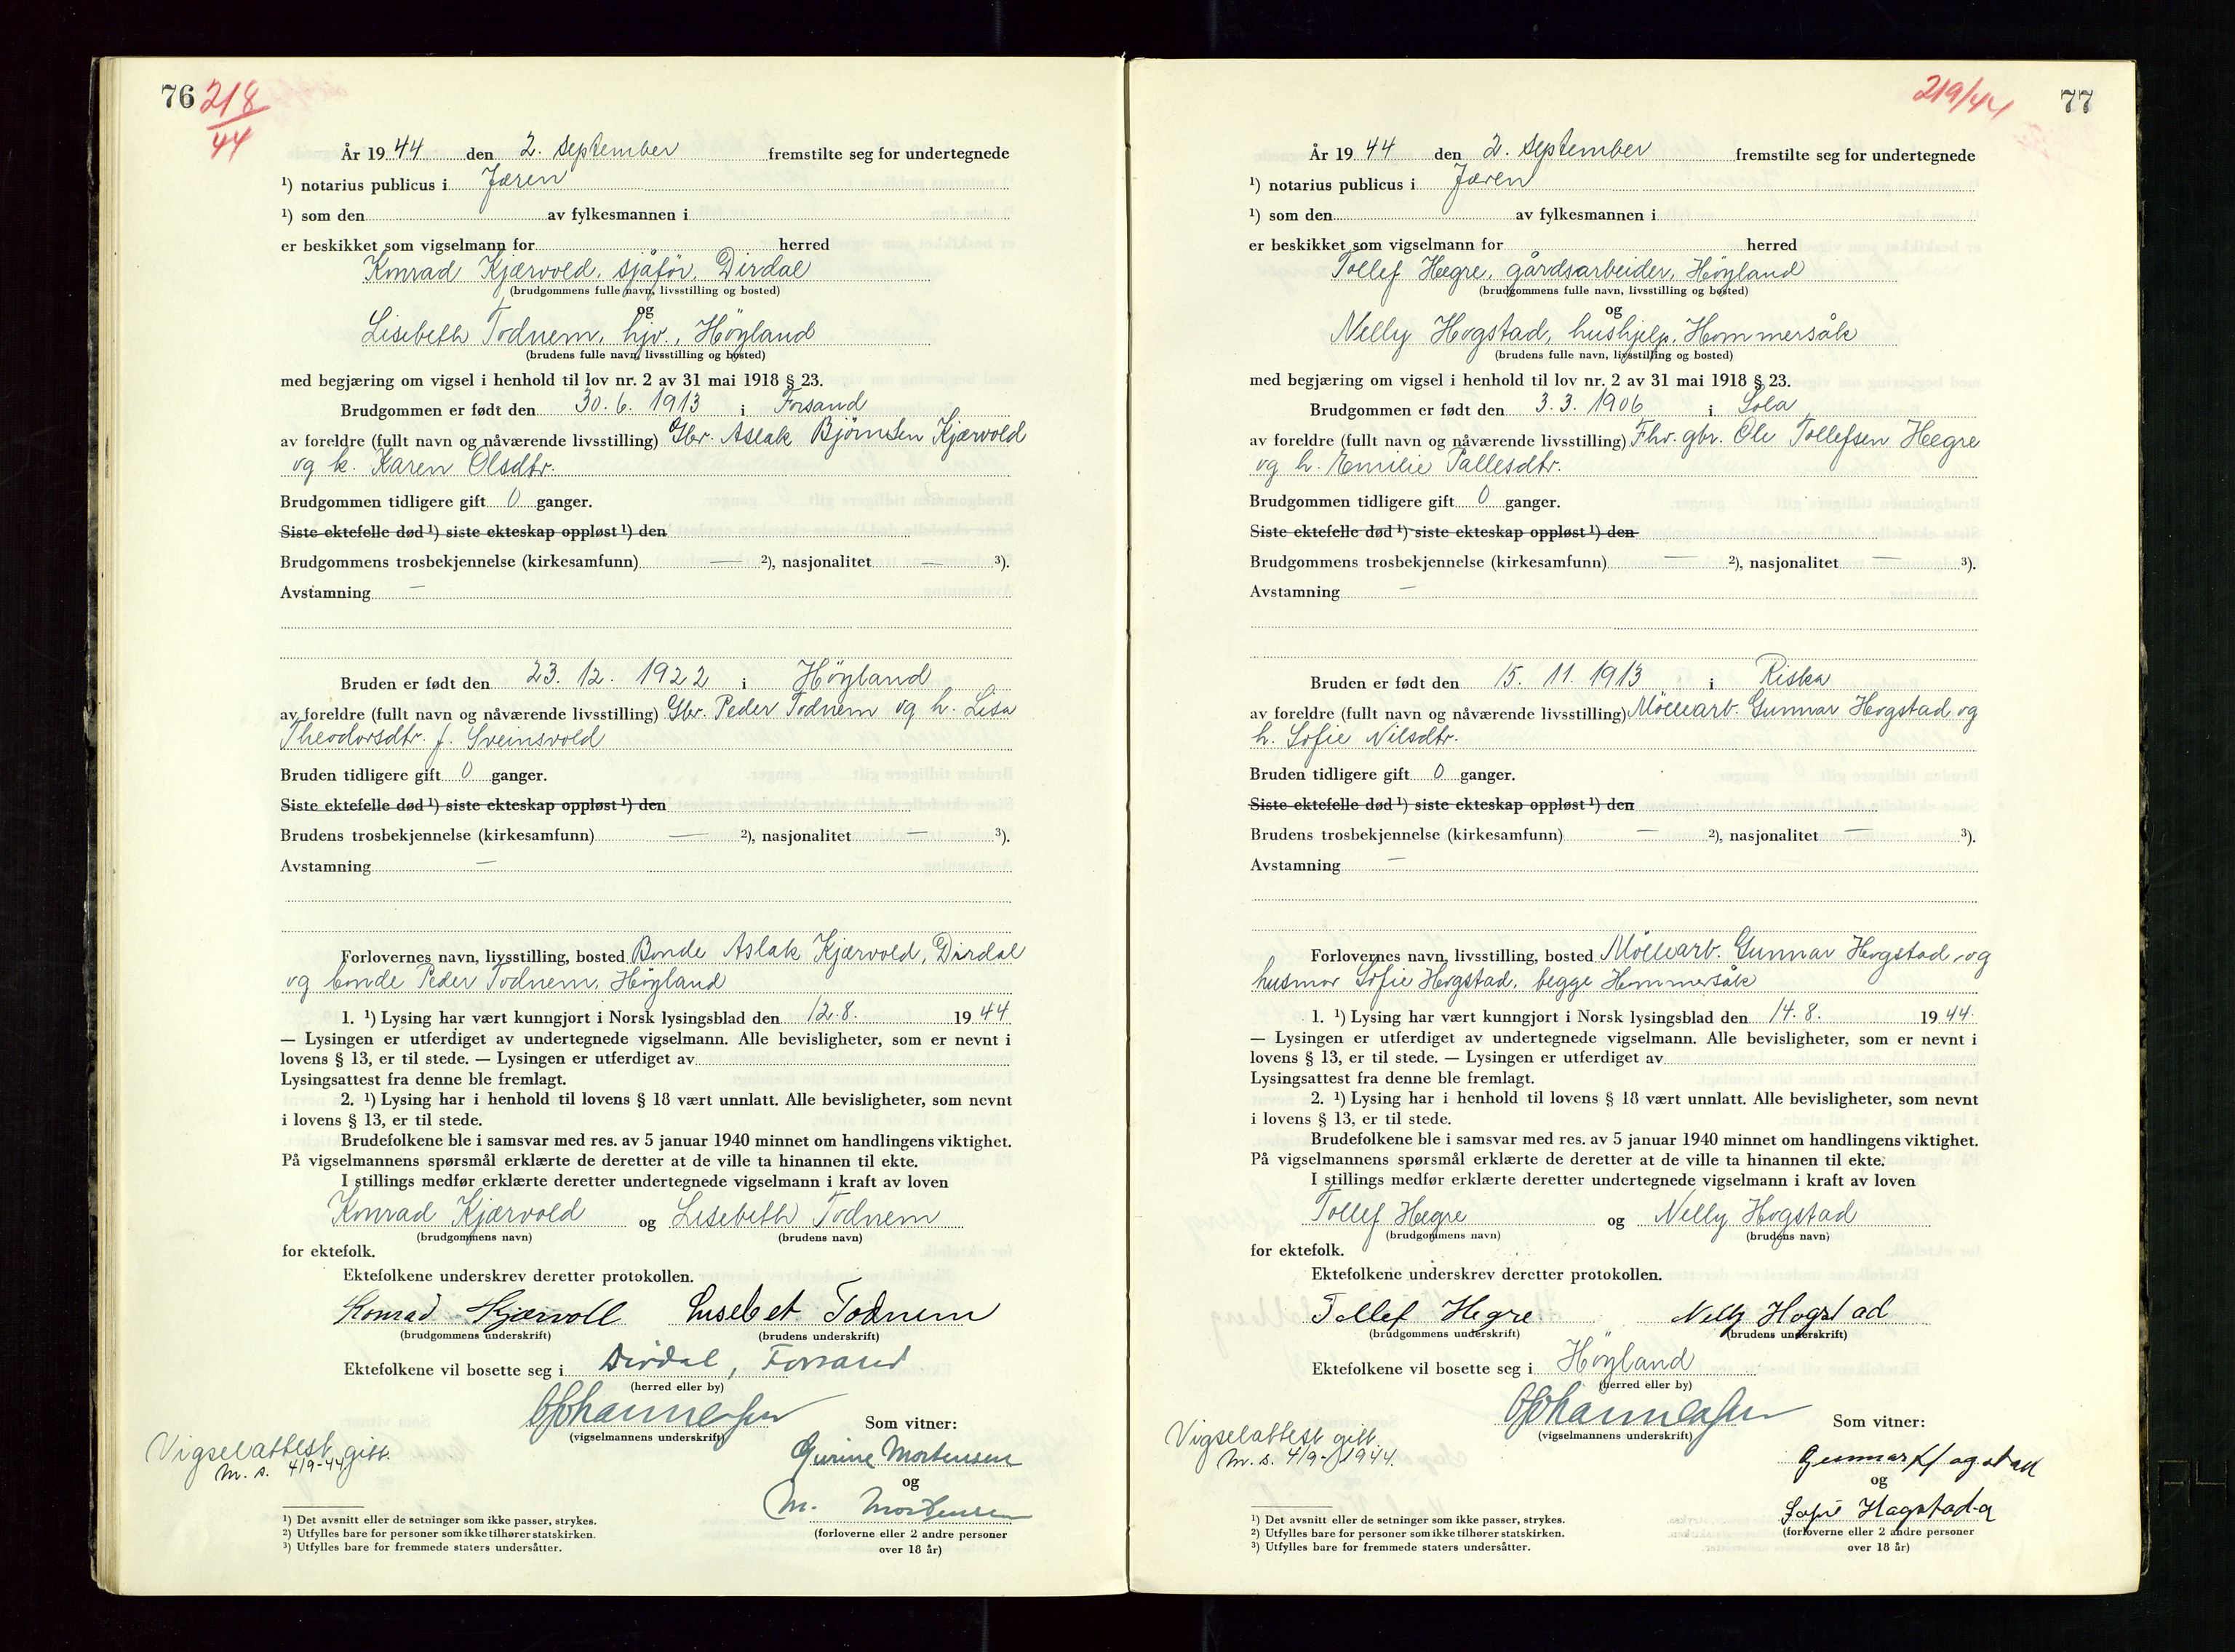 76 218/44
År 1944 den 2. september fremstilte seg for undertegnede
¹) notarius publicus i Jæren
¹) som den av fylkesmannen i
er beskikket som vigselmann for herred
Konrad Kjærvold, sjåför, Dirdal
(brudgommens fulle navn, livsstilling og bosted)
og
Lisebeth Todnem, hjv., Höyland
(brudens fulle navn, livsstilling og bosted)
med begjæring om vigsel i henhold til lov nr. 2 av 31 mai 1918 § 23.
Brudgommen er født den 30. 6. 1913 i Forsand
av foreldre (fullt navn og nåværende livsstilling) Gbr. Aslak Björnsen Kjærvold
og h. Karen Olsdtr.
Brudgommen tidligere gift 0 ganger.
Siste ektefelle død ¹) siste ekteskap oppløst ¹) den
Brudgommens trosbekjennelse (kirkesamfunn) — ²), nasjonalitet — ³).
Avstamning —
Bruden er født den 23. 12. 1922 i Höyland
av foreldre (fullt navn og nåværende livsstilling) Gbr. Peder Todnem og h. Lisa
Theodorsdtr. f. Sveinsvold
Bruden tidligere gift 0 ganger.
Siste ektefelle død ¹) siste ekteskap oppløst ¹) den
Brudens trosbekjennelse (kirkesamfunn) — ²), nasjonalitet — ³).
Avstamning —
Forlovernes navn, livsstilling, bosted Bonde Aslak Kjærvold, Dirdal
og bonde Peder Todnem, Höyland
1. ¹) Lysing har vært kunngjort i Norsk lysingsblad den 12.8. 1944
— Lysingen er utferdiget av undertegnede vigselmann. Alle bevisligheter, som er nevnt i
lovens § 13, er til stede. — Lysingen er utferdiget av
Lysingsattest fra denne ble fremlagt.
2. ¹) Lysing har i henhold til lovens § 18 vært unnlatt. Alle bevisligheter, som nevnt
i lovens § 13, er til stede.
Brudefolkene ble i samsvar med res. av 5 januar 1940 minnet om handlingens viktighet.
På vigselmannens spørsmål erklærte de deretter at de ville ta hinannen til ekte.
I stillings medfør erklærte deretter undertegnede vigselmann i kraft av loven
Konrad Kjærvold og Lisebeth Todnem
(brudgommens navn) (brudens navn)
for ektefolk.
Ektefolkene underskrev deretter protokollen.
Konrad Kjærvoll Lisebet Todnem
(brudgommens underskrift) (brudens underskrift)
Ektefolkene vil bosette seg i Dirdal, Forsand
(herred eller by)
Som vitner:
(vigselmannens underskrift)
Vigselattest gitt.
m. s. 4/9-44
Gurine Mortensen
og
M. Mortensen
(forloverne eller 2 andre personer
over 18 år)
¹) Det avsnitt eller de setninger som ikke passer, strykes.
²) Utfylles bare for personer som ikke tilhører statskirken.
³) Utfylles bare for fremmede staters undersåtter.
219/44 77
År 1944 den 2. september fremstilte seg for undertegnede
¹) notarius publicus i Jæren
¹) som den av fylkesmannen i
er beskikket som vigselmann for herred
Tollef Hegre, gårdsarbeider, Höyland
(brudgommens fulle navn, livsstilling og bosted)
og
Nelly Hogstad, hushjelp, Hommersåk
(brudens fulle navn, livsstilling og bosted)
med begjæring om vigsel i henhold til lov nr. 2 av 31 mai 1918 § 23.
Brudgommen er født den 3. 3. 1906 i Sola
av foreldre (fullt navn og nåværende livsstilling) Fhv. gbr. Ole Tollefsen Hegre
og h. Emilie Pallesdtr.
Brudgommen tidligere gift 0 ganger.
Siste ektefelle død ¹) siste ekteskap oppløst ¹) den
Brudgommens trosbekjennelse (kirkesamfunn) — ²), nasjonalitet — ³).
Avstamning —
Bruden er født den 15. 11. 1913 i Riska
av foreldre (fullt navn og nåværende livsstilling) Möllearb. Gunnar Hogstad og
h. Sofie Nilsdtr.
Bruden tidligere gift 0 ganger.
Siste ektefelle død ¹) siste ekteskap oppløst ¹) den
Brudens trosbekjennelse (kirkesamfunn) — ²), nasjonalitet — ³).
Avstamning —
Forlovernes navn, livsstilling, bosted Möllearb. Gunnar Hogstad, og
husmor Sofie Hogstad, begge Hommersåk
1. ¹) Lysing har vært kunngjort i Norsk lysingsblad den 14. 8. 1944.
— Lysingen er utferdiget av undertegnede vigselmann. Alle bevisligheter, som er nevnt i
lovens § 13, er til stede. — Lysingen er utferdiget av
Lysingsattest fra denne ble fremlagt.
2. ¹) Lysing har i henhold til lovens § 18 vært unnlatt. Alle bevisligheter, som nevnt
i lovens § 13, er til stede.
Brudefolkene ble i samsvar med res. av 5 januar 1940 minnet om handlingens viktighet.
På vigselmannens spørsmål erklærte de deretter at de ville ta hinannen til ekte.
I stillings medfør erklærte deretter undertegnede vigselmann i kraft av loven
Tollef Hegre og Nelly Hogstad
(brudgommens navn) (brudens navn)
for ektefolk.
Ektefolkene underskrev deretter protokollen.
Tollef Hegre Nelly Hogstad
(brudgommens underskrift) (brudens underskrift)
Ektefolkene vil bosette seg i Höyland
(herred eller by)
Som vitner:
(vigselmannens underskrift)
Vigselattest gitt.
m. s. 4/9-1944.
Gunnar Hogstad
og
Sofie Hogstad
(forloverne eller 2 andre personer
over 18 år)
¹) Det avsnitt eller de setninger som ikke passer, strykes.
²) Utfylles bare for personer som ikke tilhører statskirken.
³) Utfylles bare for fremmede staters undersåtter.